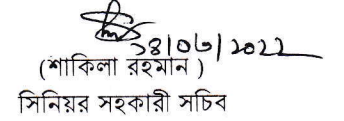 ১৪/০৬/২০২২
(শাকিলা রহমান )
সিনিয়র সহকারী সচিব